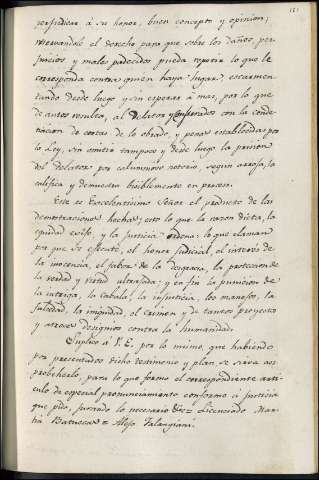 perjudicare á su honor, buen concepto y opinion;
reservandole el derecho para que sobre los daños, per-
juicios y males padecidos pueda repetir lo que le
corresponda contra quien haya lugar, escarmen-
tando desde luego y sin esperar á mas, por lo que
de autos resulta, al Delator y con la conde-
nacion de costas de lo obrado, y penas establecidas por
la Ley, sin omitir tampoco y desde luego la prision
del delator por calumnioso notorio, segun arroja, lo
califica y demuestra visiblemente en proceso.
Este es Excelentisimo Señor el producto de las
demostraciones hechas; esto lo que la razon dicta, la
equidad exije, y la Justicia ordena; lo que claman
por que se efectue, el honor judicial, el interes de
la inocencia, el fabor de la desgracia, la proteccion de
la verdad y virtud ultrajada; y en fin la punicion de
la intriga, la cabala, la injusticia, los manejos, la
falsedad, la iniquidad, el crimen y de tantos proyectos
y atroces designios contra la humanidad.
Suplico á V. E. por lo mismo, que habiendo
por presentados dicho testimonio y plan se sirva asi
probeherlo, para lo que formo el correspondiente arti-
culo de especial pronunciamiento conforme á justicia
que pido, jurando lo necesario &a = Licenciado Mar-
tin Batuecas = Alejo Falangiani.